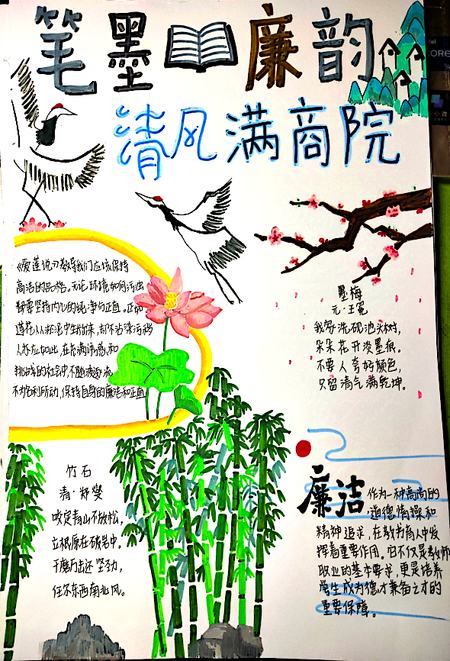 笔墨廉韵
清风满商院
《爱莲说》教导我们应该保持
高洁的品格,无论环境如何污浊
都要坚持内心的纯净与正直。正如
莲花从淤泥中生长出来,却不沾染污秽
人亦应如此,在充满诱惑和
挑战的社会中,不随波逐流
不为名利所动,保持自身的廉洁和正直
墨梅
元·王冕
我家洗砚池头树,
朵朵花开淡墨痕。
不要人夸好颜色,
只留清气满乾坤。
竹石
清·郑燮
咬定青山不放松,
立根原在破岩中。
千磨万击还坚劲,
任尔东西南北风。
廉洁
作为一种高尚的
道德情操和
精神追求,在教书育人中发
挥着重要作用。它不仅是教师
职业的基本要求,更是培养
学生成为德才兼备之才的
重要保障。